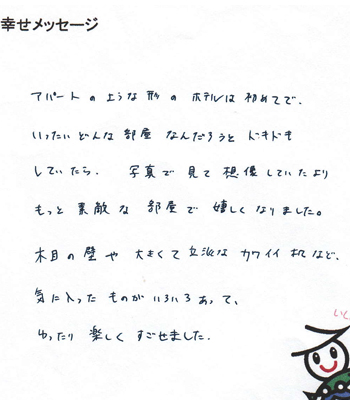 幸せメッセージ
アパートのような形のホテルは初めてで、
いったいどんな部屋なんだろうとドキドキ
していたら、写真で見て想像していたより
もっと素敵な部屋で嬉しくなりました。
木目の壁や大きくて立派なカワイイ机など、
気に入ったものがいろいろあって、
ゆったり楽しくすごせました。